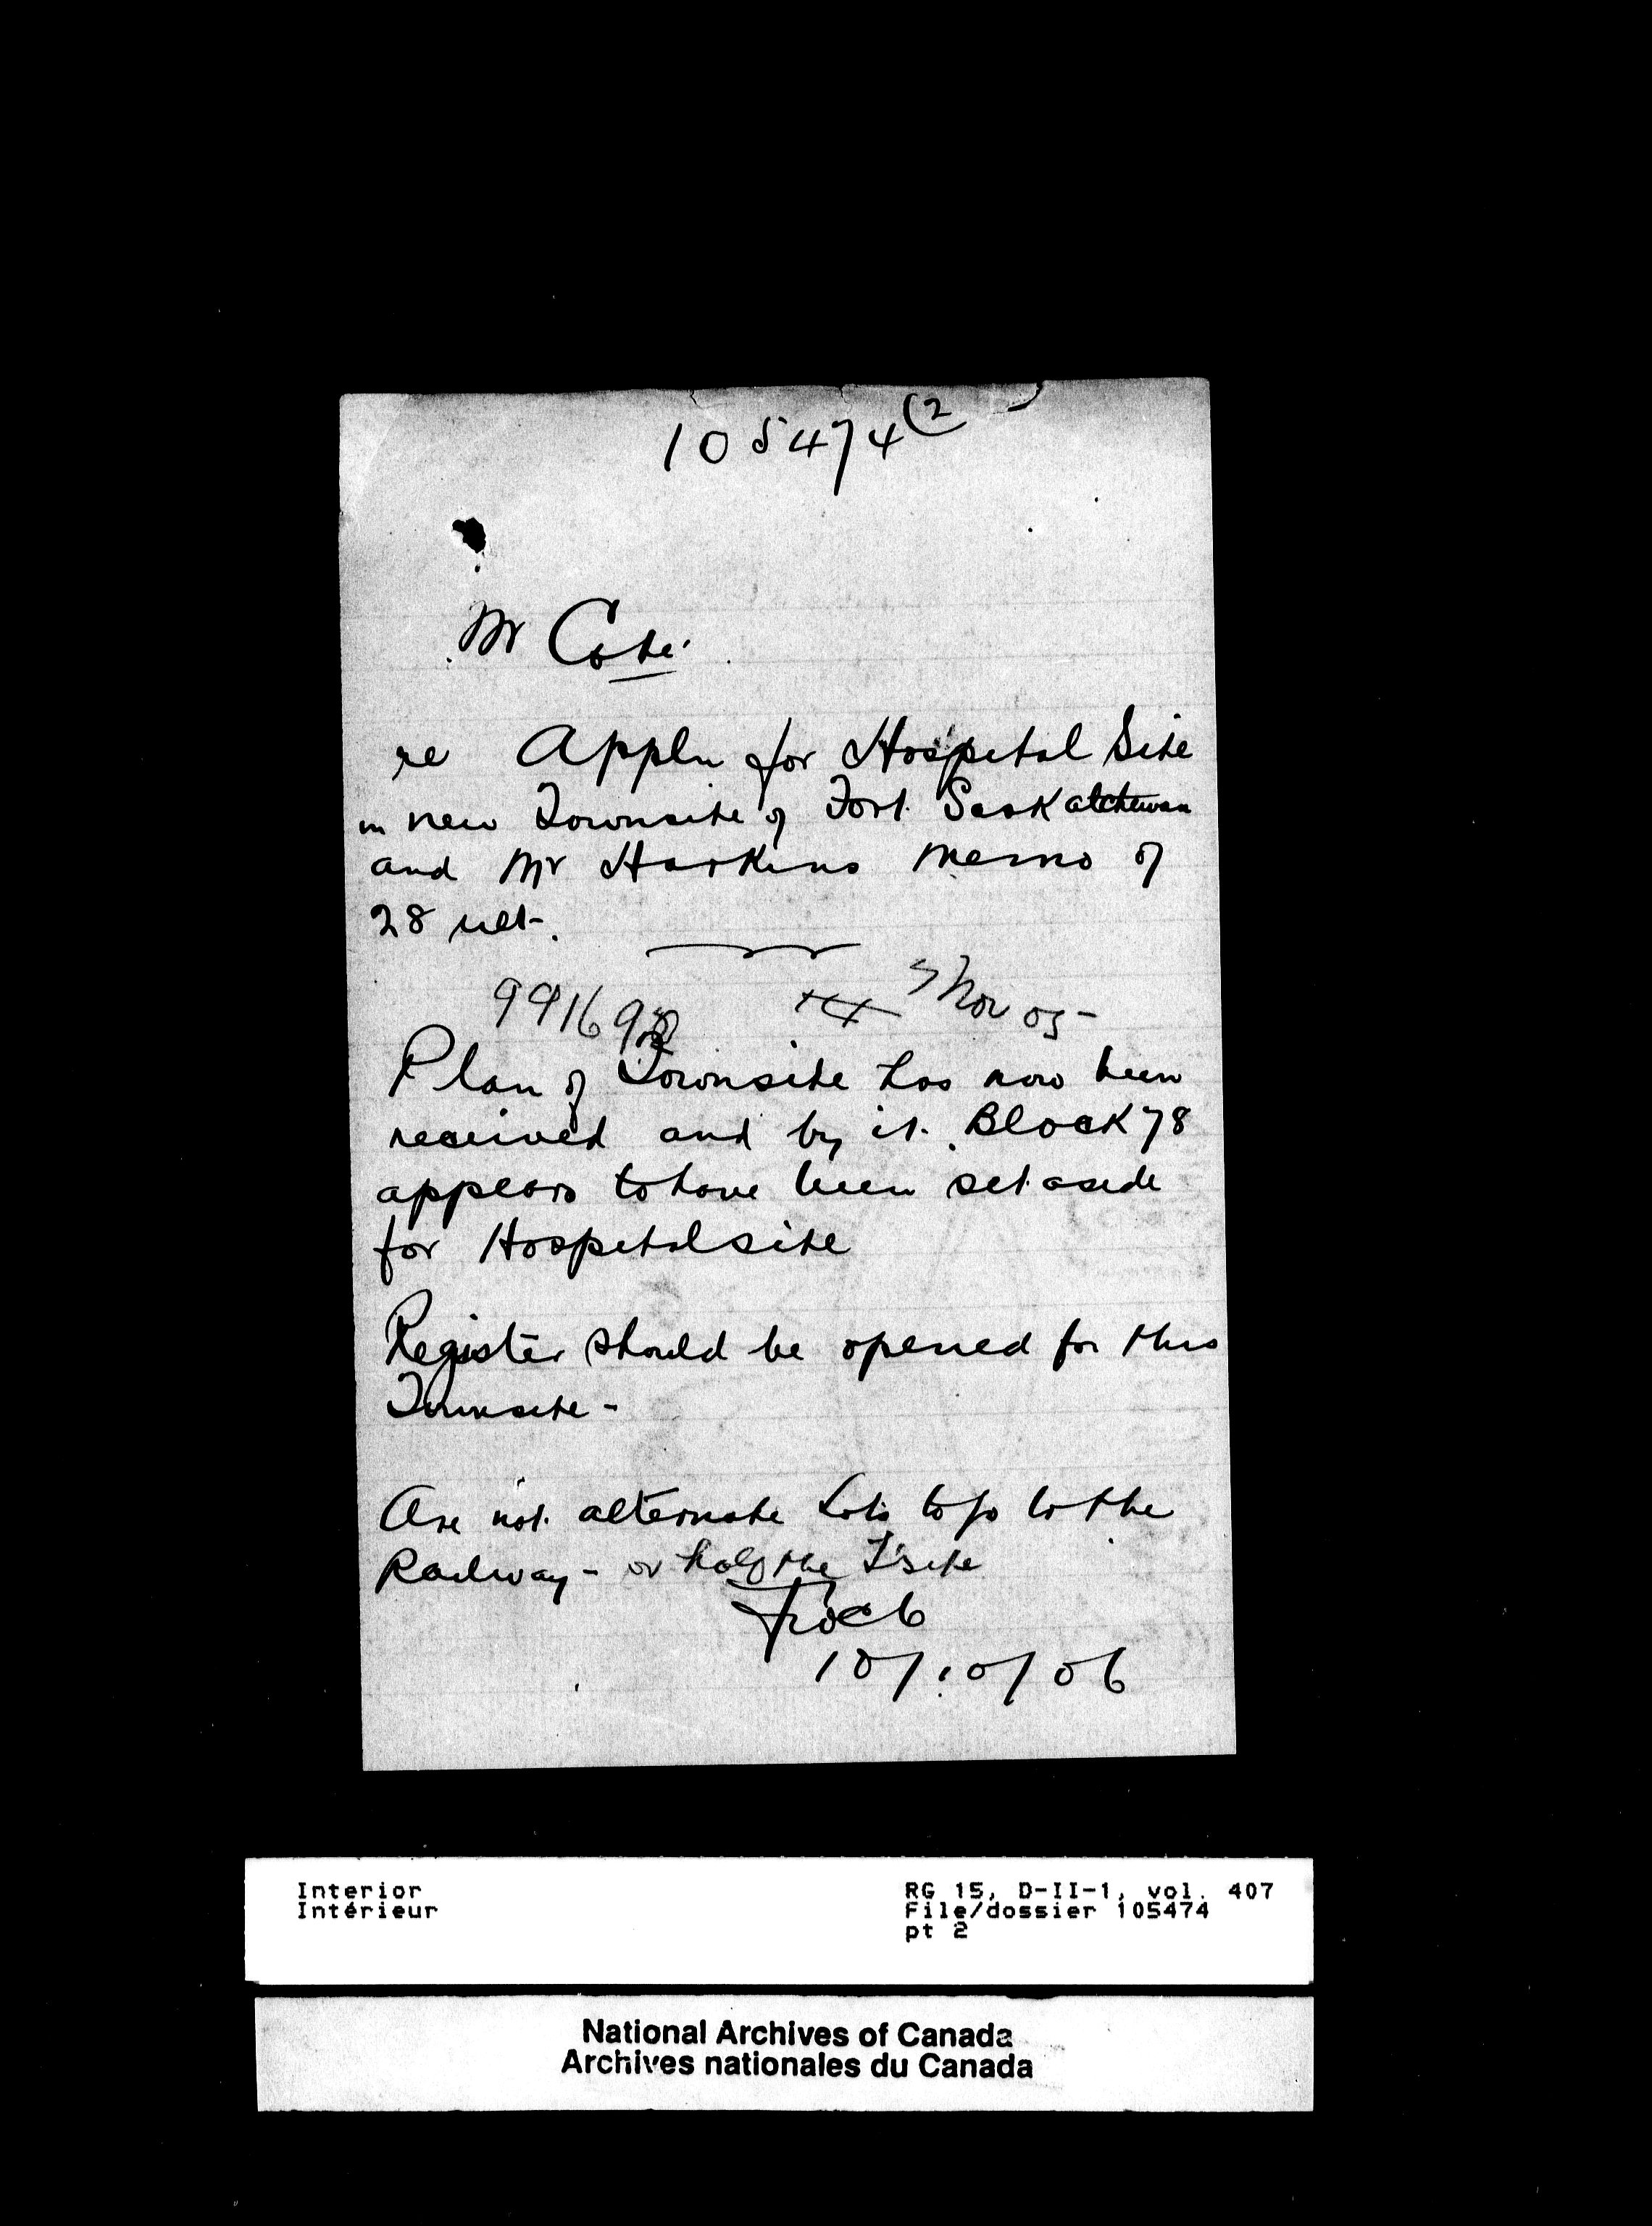 105474 (2
Mr Cote
re Appln for Hospital Site
in new Townsite of Fort Saskatchewan
and Mr Harkins memo of
28 ult.
99169
Nov 05 -
Plan of Townsite has now been
received and by it Block 78
appears to have been set aside
for Hospital site
Register should be opened for this
Townsite -
Are not alternate Lots to go to the
Railway - or half the T'site
10/10/06
Interior
Intérieur
RG 15, D-II-1, vol. 407
File/dossier 105474
pt 2
National Archives of Canada
Archives nationales du Canada